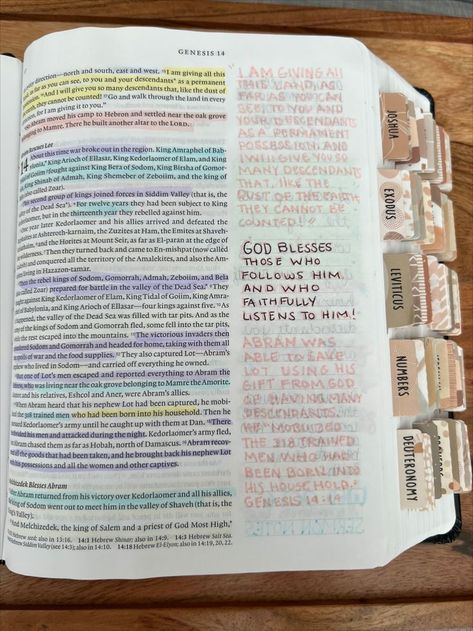 GENESIS 14
direction—north and south, east and west. "I am giving all this
as far as you can see, to you and your descendants as a permanent
And I will give you so many descendants that, like the dust of
they cannot be counted! Go and walk through the land in every
for I am giving it to you."
Abram moved his camp to Hebron and settled near the oak grove
to Mamre. There he built another altar to the LORD.
Rescues Lot
14 About this time war broke out in the region. King Amraphel of
King Arioch of Ellasar, King Kedorlaomer of Elam, and King
of Goiim fought against King Bera of Sodom, King Birsha of
King Shinab of Admah, King Shemeber of Zeboiim, and the king of
also called Zoar).
second group of kings joined forces in Siddim Valley (that is, the
Valley of the Dead Sea). For twelve years they had been subject to King
but in the thirteenth year they rebelled against him.
One year later Kedorlaomer and his allies arrived and defeated the
at Ashteroth-karnaim, the Zuzites at Ham, the Emites at
and the Horites at Mount Seir, as far as El-paran at the edge of
wilderness. Then they turned back and came to En-mishpat (now called
and conquered all the territory of the Amalekites, and also the
living in Hazazon-tamar.
Then the rebel kings of Sodom, Gomorrah, Admah, Zeboiim, and Bela
called Zoar) prepared for battle in the valley of the Dead Sea. They
against King Kedorlaomer of Elam, King Tidal of Goiim, King
of Babylonia, and King Arioch of Ellasar—four kings against five. As
the valley of the Dead Sea was filled with tar pits. And as the
army of the kings of Sodom and Gomorrah fled, some fell into the tar pits,
the rest escaped into the mountains. The victorious invaders then
Sodom and Gomorrah and headed for home, taking with them all
spoils of war and the food supplies. They also captured Lot—Abram's
who lived in Sodom—and carried off everything he owned.
one of Lot's men escaped and reported everything to Abram the
who was living near the oak grove belonging to Mamre the Amorite.
and his relatives, Eshcol and Aner, were Abram's allies.
When Abram heard that his nephew Lot had been captured, he
the 318 trained men who had been born into his household. Then he
Kedorlaomer's army until he caught up with them at Dan. There
divided his men and attacked during the night. Kedorlaomer's army fled,
Abram chased them as far as Hobah, north of Damascus. Abram
all the goods that had been taken, and he brought back his nephew Lot
possessions and all the women and other captives.
Melchizedek Blesses Abram
After Abram returned from his victory over Kedorlaomer and all his allies,
king of Sodom went out to meet him in the valley of Shaveh (that is, the
King's Valley).
And Melchizedek, the king of Salem and a priest of God Most High,
Hebrew seed; also in 13:16. 14:1 Hebrew Shinar; also in 14:9. 14:3 Hebrew Salt Sea.
Hebrew Siddim Valley (see 14:3); also in 14:10. 14:18 Hebrew El-Elyon; also in 14:19, 20, 22.
I AM GIVING ALL
THIS LAND, AS
FAR AS YOU CAN
SEE, TO YOU AND
YOUR DESCENDANTS
AS A PERMANENT
POSSESSION. AND
I WILL GIVE YOU SO
MANY DESCENDANTS
THAT, LIKE THE
DUST OF THE EARTH,
THEY CANNOT BE
COUNTED!
GOD BLESSES
THOSE WHO
FOLLOWS HIM
AND WHO
FAITHFULLY
LISTENS TO HIM!
ABRAM WAS
ABLE TO SAVE
LOT USING HIS
GIFT FROM GOD
OF HAVING MANY
DESCENDANTS.
"HE MOBILIZED
THE 318 TRAINED
MEN WHO HAD
BEEN BORN INTO
HIS HOUSEHOLD."
GENESIS 14:14
JOSHUA
EXODUS
LEVITICUS
NUMBERS
DEUTERONOMY